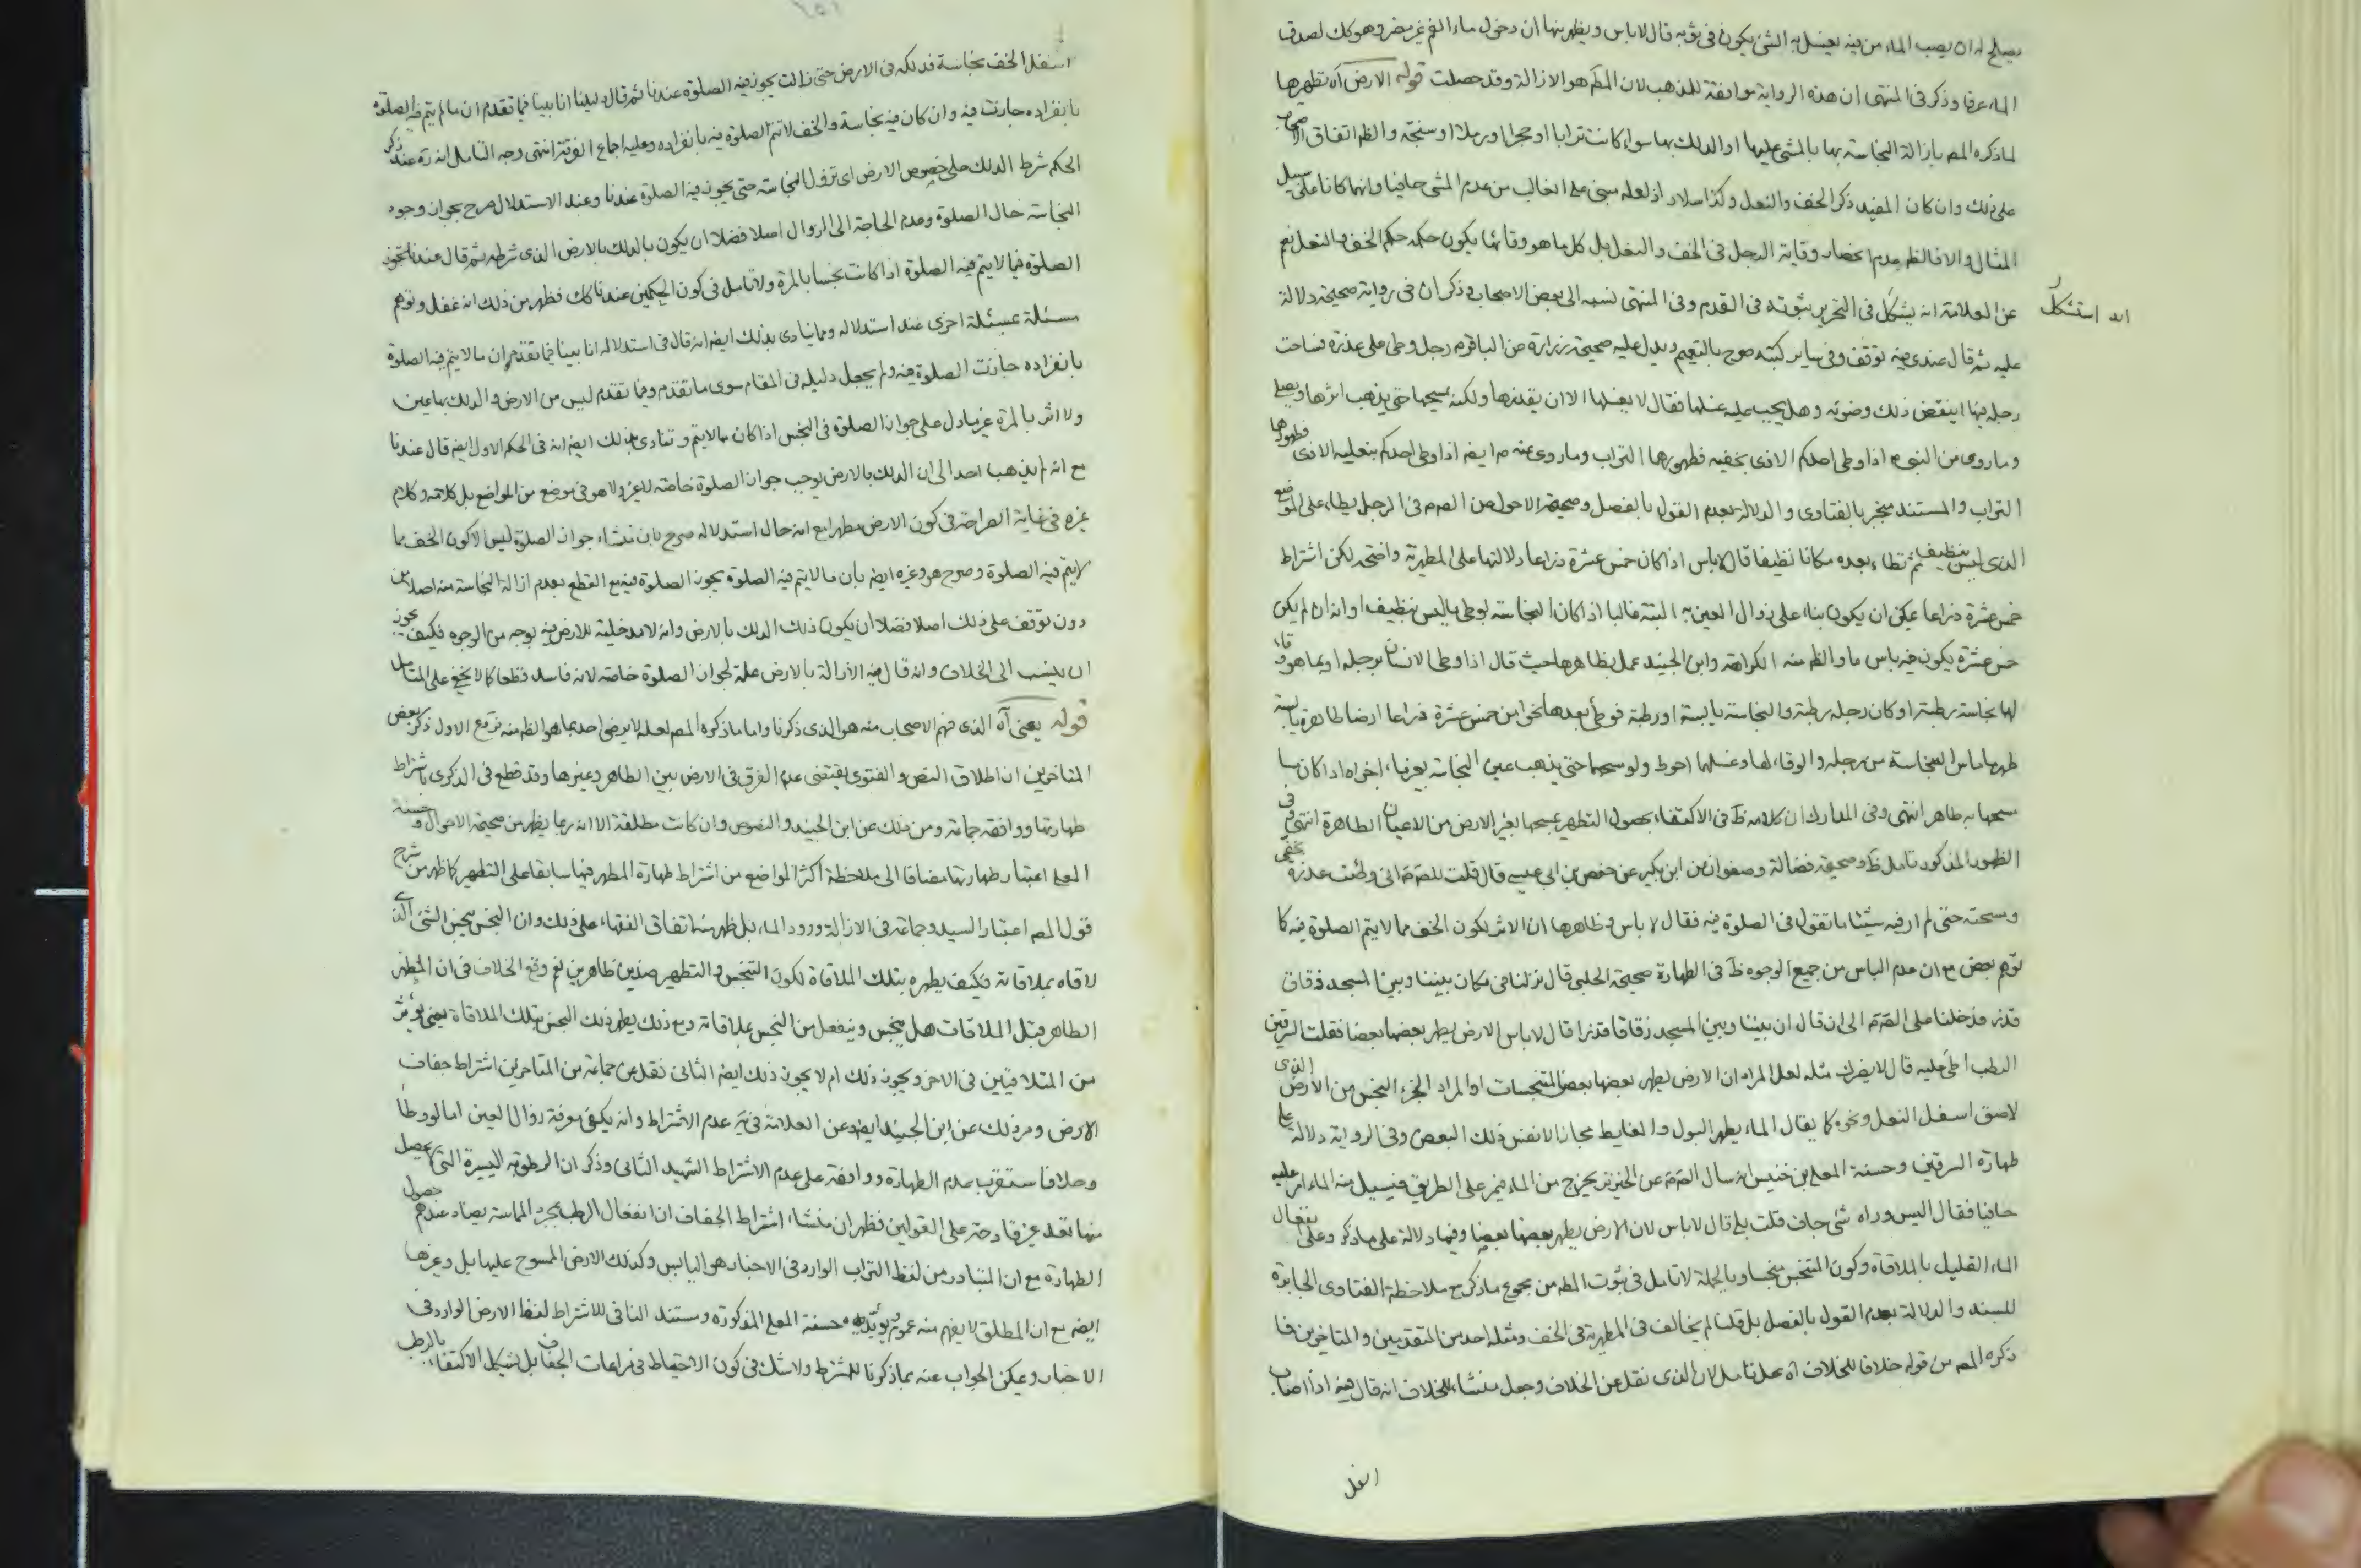 يصلح له ان يصب الماء من فيه يغسل به الشئ يكون فى ثوبه قال لا باس ويظهر منها ان دخول ماء الفم غير مضر وهو كك لصدق
الماء عرفا وذكر فى المنتهى ان هذه الرواية موافقة للمذهب لان المطهر هو الازالة وقد حصلت قوله الارض آه تطهيرها
لما ذكره المصـ بازالة النجاسة بها بالمشى عليها او الدلك بها سواء كانت ترابا او حجرا او رملا او سنجة والظـ اتفاق الاصحاب
على ذلك وان كان المفيد ذكر الخف والنعل وكذا سلار اذ لعله مبنى على الغالب من عدم المشى حافيا وانهما كانا على سبيل
المثال والا فالظـ عدم انحصار وقاية الرجل فى الخف والنعل بل كل ما هو وقائها يكون حكمه حكم الخف والنعل نعم
عن العلامة انه يشكل فى التحرير ثبوته فى القدم وفى المنتهى نسبه الى بعض الاصحاب وذكر ان فى رواية صحيحة دلالة
انه استشكل
عليه ثم قال عندى فيه توقف وفى ساير كتبه صرح بالتعميم ويدل عليه صحيحة زرارة عن الباقر م رجل وطى على عذرة فساخت
رجله فيها اينقض ذلك وضوئه وهل يجب عليه غسلها فقال لا يغسلها الا ان يقذرها ولكنه يمسحها حتى يذهب اثرها ويصلى
وما روى من النبى ص اذا وطى احدكم الاذى بخفيه فطهورهما التراب وما روى عنه ص ايضـ اذا وطى احدكم بنعليه الاذى فطهورهما
التراب والمستند منجبر بالفتاوى والدلالة بعدم القول بالفصل وصحيحة الاحول عن الصـ م فى الرجل يطاء على الموضع
الذى ليس بنظيف ثم تطاء بعده مكانا نظيفا قال لا باس اذا كان خمس عشرة ذراعا دلالتها على المطهرية واضحة لكن اشتراط
خمس عشرة ذراعا يمكن ان يكون بناء على زوال العين به البتة غالبا اذا كان النجاسة بوطى ما ليس بنظيف او انه ان لم يكن
خمس عشرة يكون فيه باس ما والظـ منه الكراهة وابن الجنيد عمل بظاهرها حيث قال اذا وطى الانسان برجله او بما هو وقاء
لها نجاسة رطبة او كان رجله رطبة والنجاسة يابسة او رطبة فوطى بعدها نحوا من خمس عشرة ذراعا ارضا طاهرة يابسة
طهر ما ماس النجاسة من رجله والوقاء لها وغسلها احوط ولو مسحهما حتى يذهب عين النجاسة بغير ماء اجزاه اذا كان ما
مسحها به طاهر انتهى وفى المدارك ان كلامه ظـ فى الاكتفاء بحصول التطهير بمسحها بغير الارض من الاعيان الطاهرة انتهى وفى
الظهور المذكور تامل ظـ وصحيحة فضالة وصفوان عن ابن بكير عن حفص بن ابى عيسى قال قلت للصـ م انى وطئت عذرة بخفى
ومسحته حتى لم ار فيه شيئا ما تقول فى الصلوة فيه فقال لا باس وظاهرها ان الاثر لكون الخف مما لا يتم الصلوة فيه كما
توهم بعض مع ان عدم الباس من جميع الوجوه ظـ فى الطهارة صحيحة الحلبى قال نزلنا فى مكان بيننا وبين المسجد زقاق
قذر فدخلنا على الصـ م الى ان قال ان بيننا وبين المسجد زقاقا قذرا قال لا باس الارض يطهر بعضها بعضا فقلت السرقين
الرطب اطى عليه قال لا يضرك مثله لعل المراد ان الارض يطهر بعضها بعض المتنجسات او المراد الجزء النجس من الارض الذى
لاصق اسفل النعل ونحوه كما يقال الماء يطهر البول والغايط مجازا لا نفس ذلك البعض وفى الرواية دلالة على
طهارة السرقين وحسنة المعلى بن خنيس انه سال الصـ م عن الخنزير يخرج من الماء فيمر على الطريق فيسيل منه الماء امر عليه
حافيا فقال اليس وراه شئ جاف قلت بلى قال لا باس لان الارض يطهر بعضها بعضا وفيها دلالة على ما ذكر وعلى انفعال
الماء القليل بالملاقاة وكون المتنجس منجسا وبالجملة لا تامل فى ثبوت المطهر من مجموع ما ذكر مع ملاحظة الفتاوى الجابرة
للسند والدلالة بعدم القول بالفصل بل قلنا لم يخالف فى المطهرية فى الخف ومثله احد من المتقدمين والمتاخرين فما
ذكره المصـ من قوله خلافا للخلاف آه محل تامل لان الذى نقل عن الخلاف وجعل منشاء للخلاف انه قال فيه اذا اصاب
اسفل
اسفل الخف نجاسة فدلكه فى الارض حتى زالت يجوز فيه الصلوة عندنا ثم قال دليلنا انا بينا فيما تقدم ان ما لم يتم فيه الصلوة
بانفراده جازت فيه وان كان فيه نجاسة والخف لا تتم الصلوة فيه بانفراده وعليه اجماع الفرقة انتهى وجه التامل انه ره عند ذكر
الحكم شرط الدلك على خصوص الارض اى تزول النجاسة حتى يجوز فيه الصلوة عندنا وعند الاستدلال صرح بجواز وجود
النجاسة حال الصلوة وعدم الحاجة الى الزوال اصلا فضلا ان يكون بالدلك بالارض الذى شرطه ثم قال عندنا تجوز
الصلوة فيما لا يتم فيه الصلوة اذا كانت نجسا بالمرة ولا تامل فى كون الحكمين عندنا كك فظهر من ذلك انه غفل وتوهم
مسئلة بمسئلة اخرى عند استدلاله ومما ينادى بذلك ايضـ انه قال فى استدلاله انا بينا فيما تقدم ان ما لا يتم فيه الصلوة
بانفراده جازت الصلوة فيه ولم يجعل دليله فى المقام سوى ما تقدم وفيما تقدم ليس من الارض والدلك بها عين
ولا اثر بالمرة غير ما دل على جواز الصلوة فى النجس اذا كان مما لا يتم وتنادى بذلك ايضـ انه فى الحكم الاول ايضـ قال عندنا
مع انه لم يذهب احد الى ان الدلك بالارض يوجب جواز الصلوة خاصة لا غير ولا هو فى موضع من المواضع بل كلامه وكلام
غيره فى غاية الصراحة فى كون الارض مطهرا مع انه حال استدلاله صرح بان منشاء جواز الصلوة ليس الا كون الخف مما
لا يتم فيه الصلوة وصرح هو وغيره ايضـ بان ما لا يتم فيه الصلوة يجوز الصلوة فيه مع القطع بعدم ازالة النجاسة منه اصلا من
دون توقف على ذلك اصلا فضلا ان يكون ذلك الدلك بالارض وانه لا مدخلية للارض فيه بوجه من الوجوه فكيف يجوز
ان ينسب الى الخلاف وانه قال فيه الازالة بالارض علة لجواز الصلوة خاصة لانه فاسد قطعا كما لا يخفى على المتامل
قوله يعنى آه الذى فهم الاصحاب منه هو الذى ذكرنا واما ما ذكره المصـ لعله لا يرضى احد بما هو الظـ منه فروع الاول ذكر بعض
المتاخرين ان اطلاق النص والفتوى يقتضى عدم الفرق فى الارض بين الطاهر وغيرها وقد قطع فى الذكرى باشتراط
طهارتها ووافقه جماعة ومر ذلك عن ابن الجنيد والنصوص وان كانت مطلقة الا انه ربما يظهر من صحيحة الاحول وحسنة
المعلى اعتبار طهارتها مضافا الى ملاحظة اكثر المواضع من اشتراط طهارة المطهر فيها سابقا على التطهير كما ظهر من شرح
قول المصـ اعتبار السيد وجماعة فى الازالة ورود الماء بل ظهر منه اتفاق الفقهاء على ذلك وان النجس ينجس الشئ الذى
لاقاه بملاقاته فكيف يطهره بتلك الملاقاة لكون التنجس والتطهير ضدين ظاهرين نعم وقع الخلاف فى ان المطهر
الطاهر قبل الملاقات هل ينجس وينفعل من النجس بملاقاته ومع ذلك يطهر ذلك النجس بتلك الملاقاة يعنى يؤثر
من المتلاقيين فى الاخر ويجوز ذلك ام لا يجوز ذلك ايضـ الثانى نقل عن جماعة من المتاخرين اشتراط جفاف
الارض ومر ذلك عن ابن الجنيد ايضـ وعن العلامة فى يه عدم الاشتراط وانه يكفى معرفة زوال العين اما لو وطا
وحلا فاستقرب عدم الطهارة ووافقه على عدم الاشتراط الشهيد الثانى وذكر ان الرطوبة اليسيرة التى لا يحصل
منها تعد غير قادحة على القولين فظهر ان منشاء اشتراط الجفاف ان انفعال الرطب بمجرد المماسة يضاد عندهم حصول
الطهارة مع ان المتبادر من لفظ التراب الوارد فى الاخبار هو اليابس وكذلك الارض الممسوح عليها بل وغيرها
ايضـ مع ان المطلق لا يفهم منه عموم ويؤيده حسنة المعلى المذكورة ومستند النافى للاشتراط لفظ الارض الوارد فى
الاخبار ويمكن الجواب عنه بما ذكرنا للمشترط ولا شك فى كون الاحتياط فى مراعات الجفاف بل يشكل الاكتفاء بالرطب